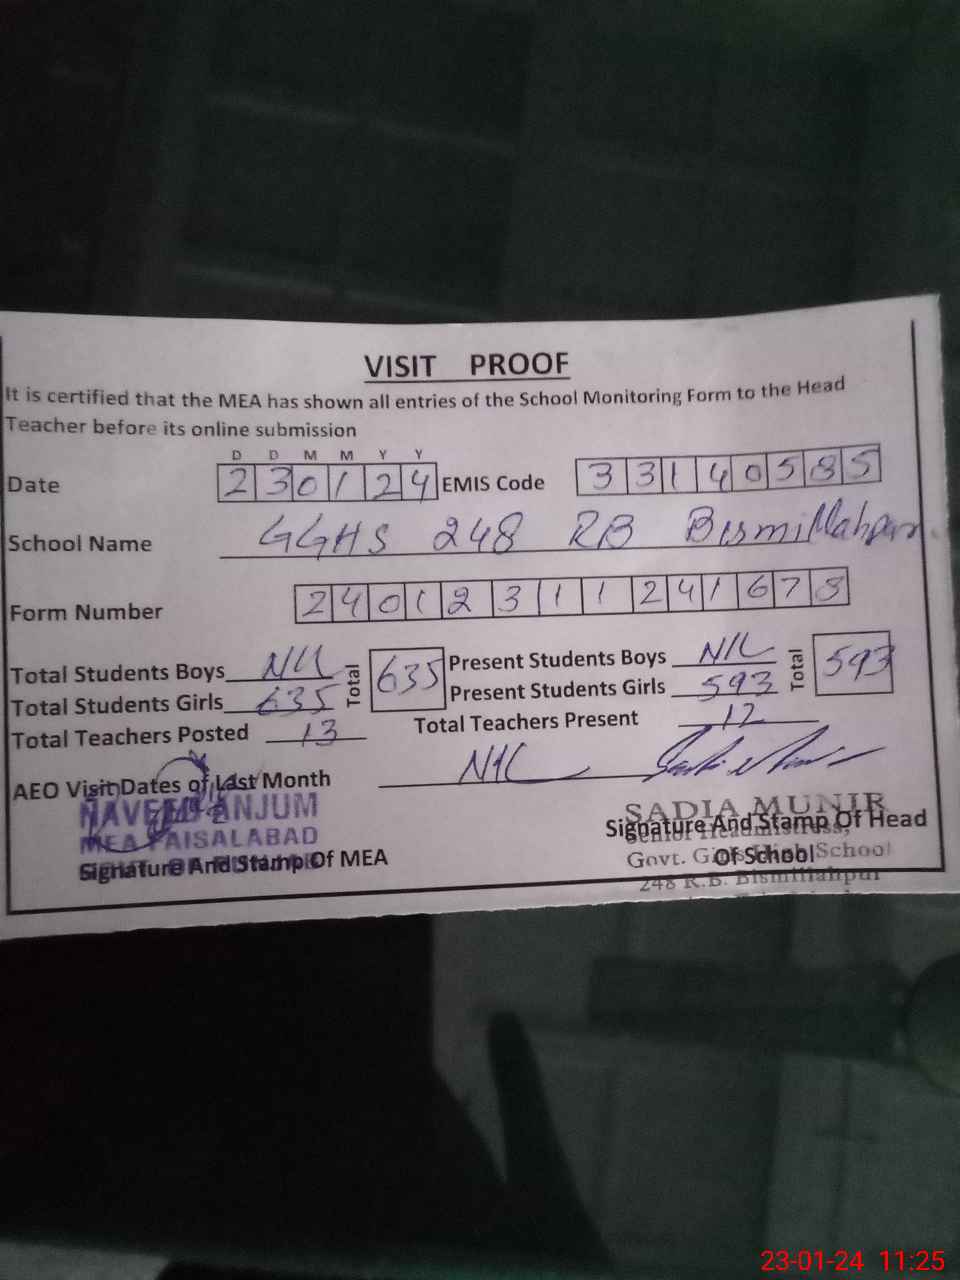 VISIT PROOF
It is certified that the MEA has shown all entries of the School Monitoring Form to the Head
Teacher before its online submission
D D M M Y Y
Date 230124 EMIS Code 33140585
School Name GGHS 248 RB Bismillahpur
Form Number 24012311241678
Total Students Boys Nil Total 635 Present Students Boys NIL Total 593
Total Students Girls 635 Present Students Girls 593
Total Teachers Posted 13 Total Teachers Present 12
AEO Visit Dates of Last Month NIL
NAVEED ANJUM
MEA FAISALABAD
Signature And Stamp Of MEA
SADIA MUNIR
Signature And Stamp Of Head
Senior Headmistress,
Of School
Govt. Girls High School
248 R.B. Bismillahpur
23-01-24 11:25